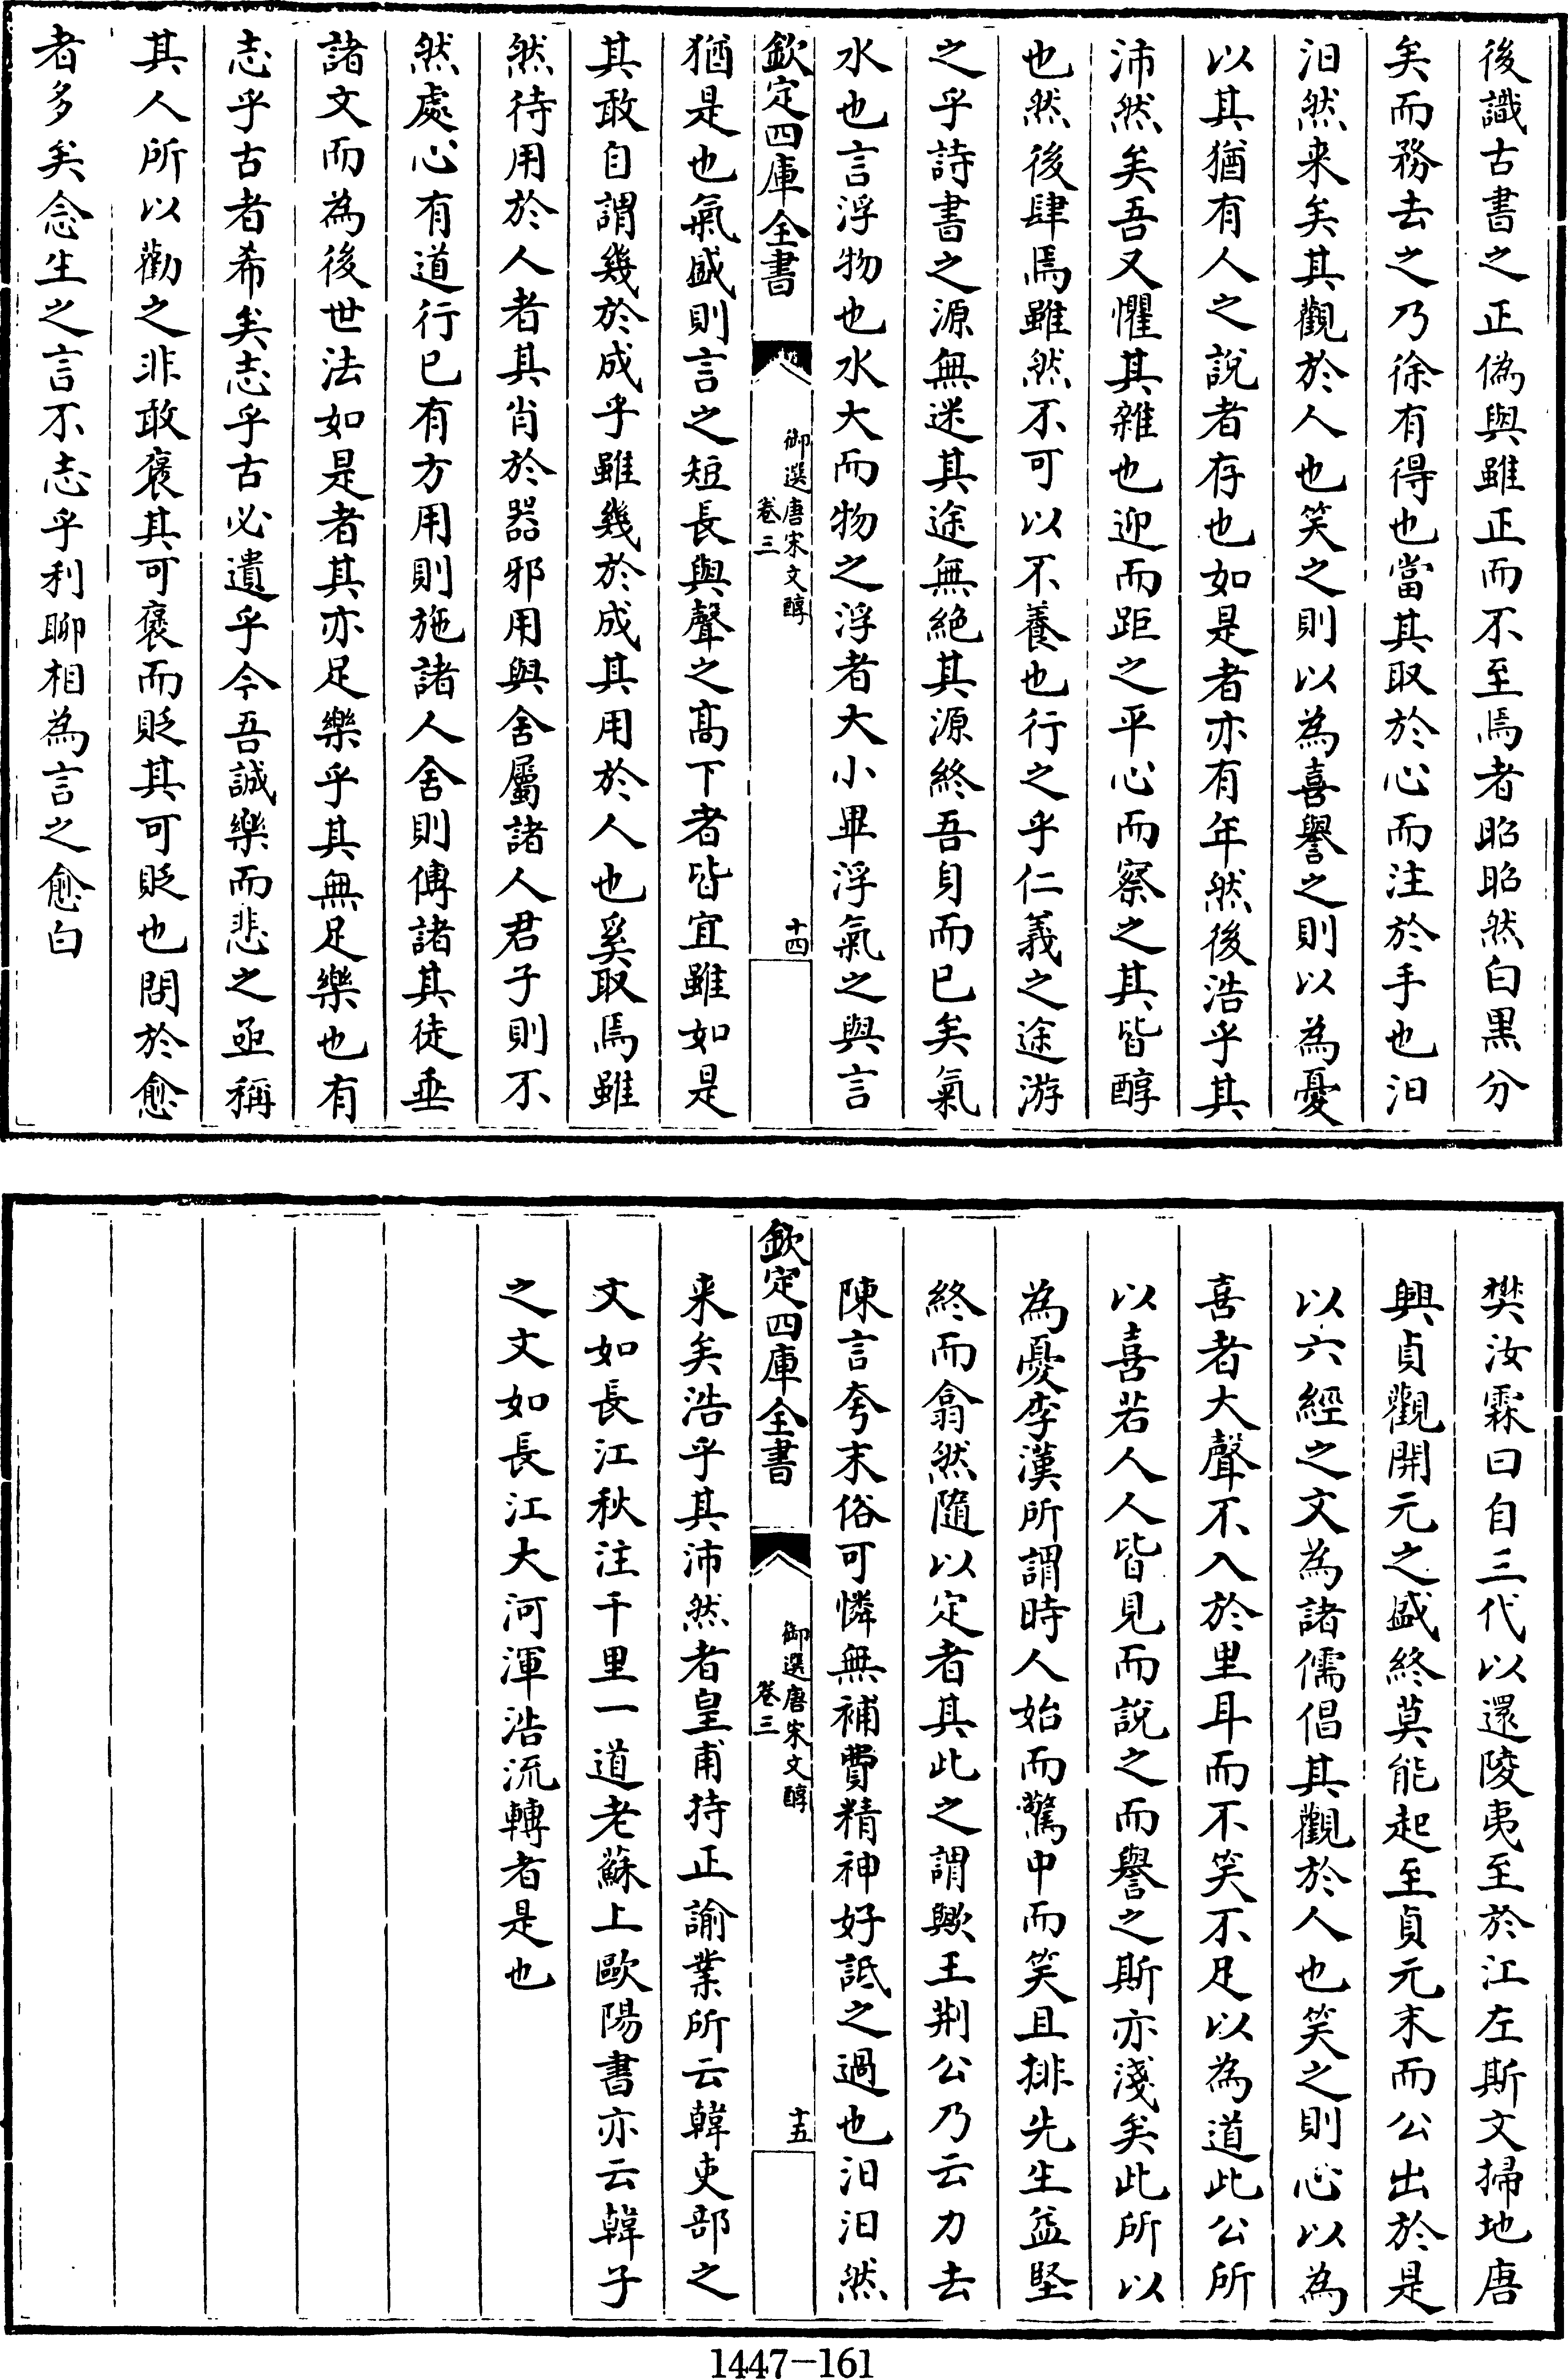 後識古書之正偽與雖正而不至焉者昭昭然白黒分
矣而務去之乃徐有得也當其取於心而注於手也汩
汩然来矣其觀於人也笑之則以為喜譽之則以為憂
以其猶有人之說者存也如是者亦有年然後浩乎其
沛然矣吾又懼其雜也迎而距之平心而察之其皆醇
也然後肆焉雖然不可以不養也行之乎仁義之途游
之乎詩書之源無迷其途無絶其源終吾身而已矣氣
水也言浮物也水大而物之浮者大小畢浮氣之與言
欽定四庫全書
御選唐宋文醇
卷三
十四
猶是也氣盛則言之短長與聲之髙下者皆宜雖如是
其敢自謂幾於成乎雖幾於成其用於人也奚取焉雖
然待用於人者其肖於器邪用與舍屬諸人君子則不
然處心有道行已有方用則施諸人舍則傅諸其徒垂
諸文而為後世法如是者其亦足樂乎其無足樂也有
志乎古者希矣志乎古必遺乎今吾誠樂而悲之亟稱
其人所以勸之非敢褒其可褒而貶其可貶也問於愈
者多矣念生之言不志乎利聊相為言之愈白
樊汝霖曰自三代以還陵夷至於江左斯文掃地唐
興貞觀開元之盛終莫能起至貞元末而公出於是
以六經之文為諸儒倡其觀於人也笑之則心以為
喜者大聲不入於里耳而不笑不足以為道此公所
以喜若人人皆見而說之而譽之斯亦淺矣此所以
為憂李漢所謂時人始而驚中而笑且排先生益堅
終而翕然隨以定者其此之謂歟王荆公乃云力去
陳言夸末俗可憐無補費精神好詆之過也汩汩然
欽定四庫全書
御選唐宋文醇
卷三
十五
来矣浩乎其沛然者皇甫持正諭業所云韓吏部之
文如長江秋注千里一道老蘇上歐陽書亦云韓子
之文如長江大河渾浩流轉者是也
1447-161